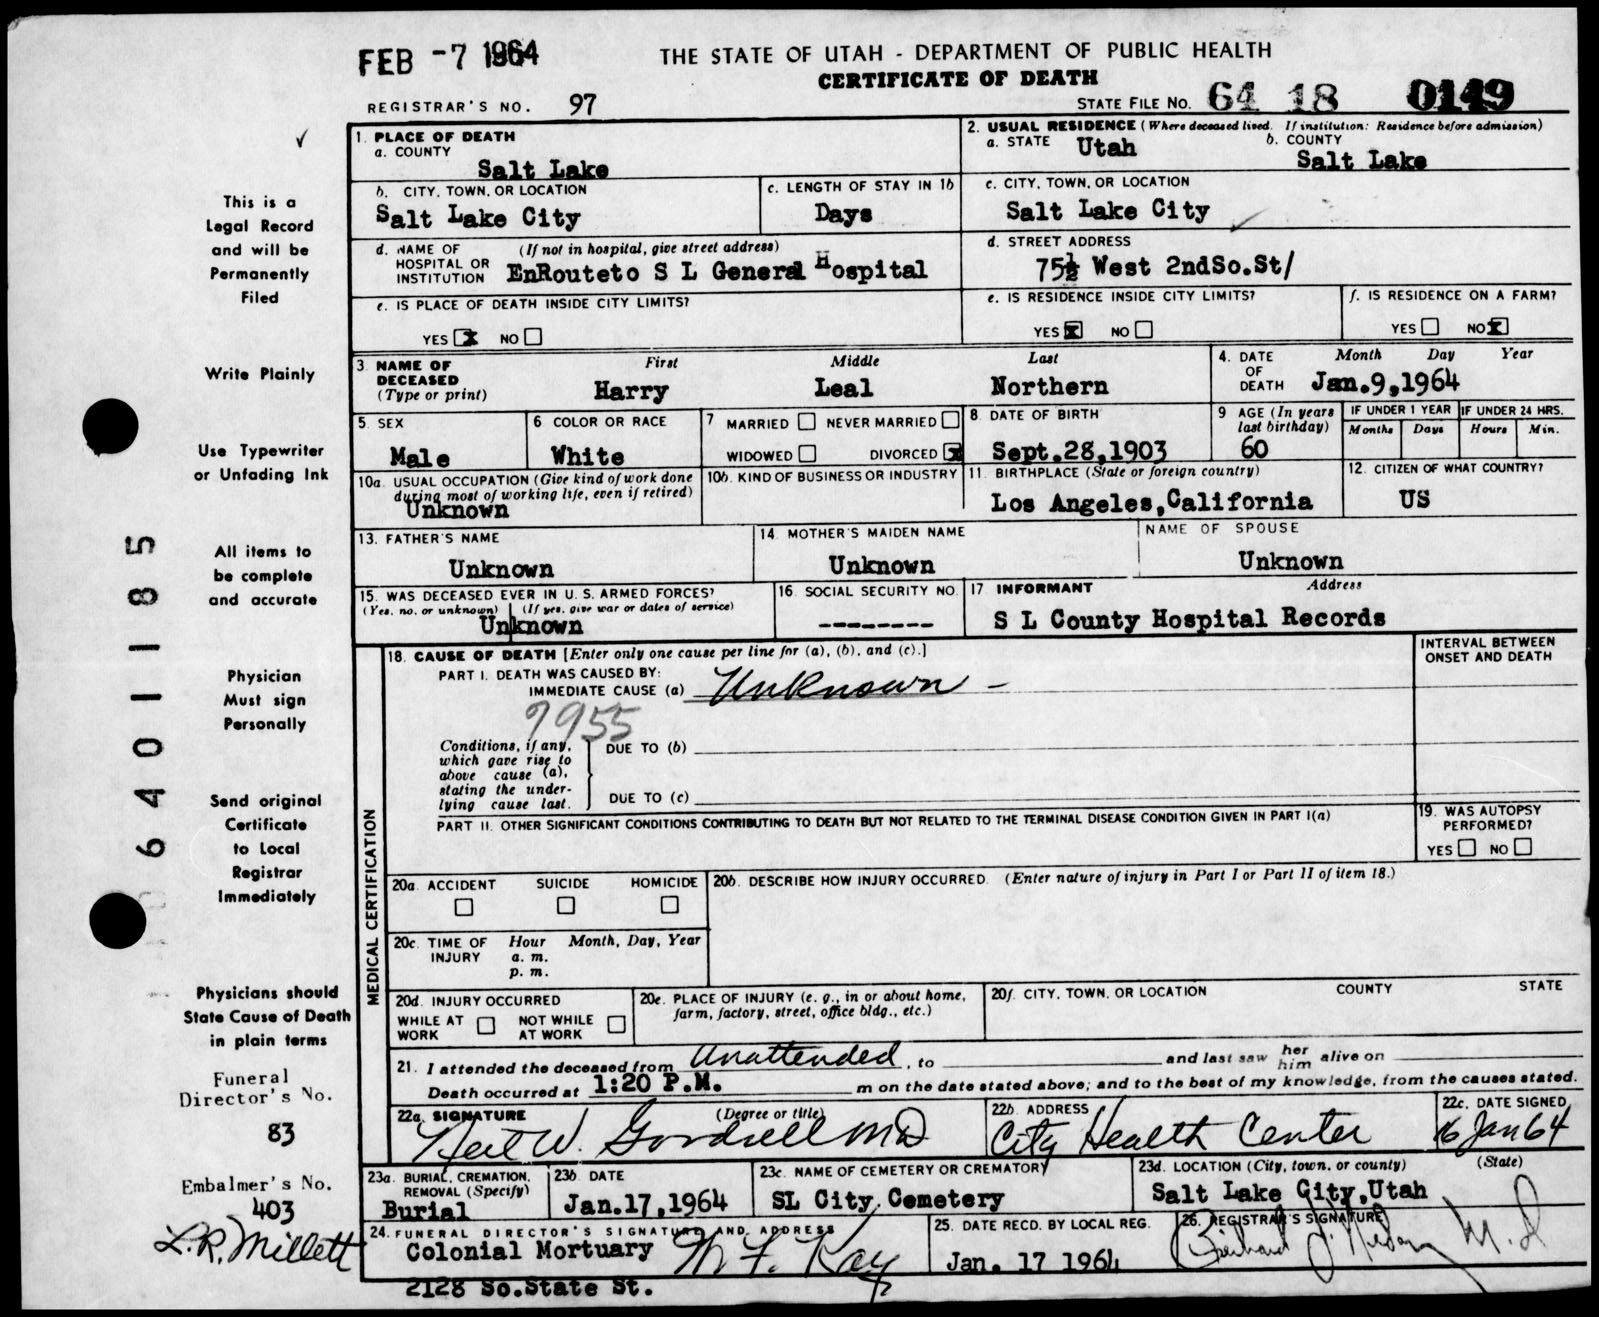 FEB -7 1964
THE STATE OF UTAH - DEPARTMENT OF PUBLIC HEALTH
CERTIFICATE OF DEATH
REGISTRAR'S NO. 97
STATE FILE NO. 64 18 0149
This is a
Legal Record
and will be
Permanently
Filed
Write Plainly
Use Typewriter
or Unfading Ink
All items to
be complete
and accurate
Physician
Must sign
Personally
Send original
Certificate
to Local
Registrar
Immediately
Physicians should
State Cause of Death
in plain terms
Funeral
Director's No.
83
Embalmer's No.
403
L.R. Millett
6401185
1. PLACE OF DEATH
a. COUNTY
Salt Lake
2. USUAL RESIDENCE (Where deceased lived. If institution: Residence before admission)
a. STATE Utah
b. COUNTY
Salt Lake
b. CITY, TOWN, OR LOCATION
Salt Lake City
c. LENGTH OF STAY IN 1b
Days
c. CITY, TOWN, OR LOCATION
Salt Lake City
d. NAME OF (If not in hospital, give street address)
HOSPITAL OR
INSTITUTION EnRouteto S L General Hospital
d. STREET ADDRESS
75½ West 2ndSo.St/
e. IS PLACE OF DEATH INSIDE CITY LIMITS?
YES X NO
e. IS RESIDENCE INSIDE CITY LIMITS?
YES X NO
f. IS RESIDENCE ON A FARM?
YES NO X
3. NAME OF First Middle Last
DECEASED
(Type or print) Harry Leal Northern
4. DATE Month Day Year
OF
DEATH Jan.9,1964
5. SEX
Male
6 COLOR OR RACE
White
7 MARRIED NEVER MARRIED
WIDOWED DIVORCED X
8. DATE OF BIRTH
Sept.28,1903
9 AGE (In years
last birthday)
60
IF UNDER 1 YEAR IF UNDER 24 HRS.
Months Days Hours Min.
10a. USUAL OCCUPATION (Give kind of work done
during most of working life, even if retired)
Unknown
10b. KIND OF BUSINESS OR INDUSTRY
11. BIRTHPLACE (State or foreign country)
Los Angeles,California
12. CITIZEN OF WHAT COUNTRY?
US
13. FATHER'S NAME
Unknown
14. MOTHER'S MAIDEN NAME
Unknown
NAME OF SPOUSE
Unknown
15. WAS DECEASED EVER IN U. S. ARMED FORCES?
(Yes, no, or unknown) (If yes, give war or dates of service)
Unknown
16. SOCIAL SECURITY NO.
--------
17 INFORMANT Address
S L County Hospital Records
MEDICAL CERTIFICATION
18. CAUSE OF DEATH [Enter only one cause per line for (a), (b), and (c).]
INTERVAL BETWEEN
ONSET AND DEATH
PART I. DEATH WAS CAUSED BY:
IMMEDIATE CAUSE (a) Unknown -
7955
Conditions, if any,
which gave rise to
above cause (a),
stating the under-
lying cause last.
DUE TO (b)
DUE TO (c)
PART II. OTHER SIGNIFICANT CONDITIONS CONTRIBUTING TO DEATH BUT NOT RELATED TO THE TERMINAL DISEASE CONDITION GIVEN IN PART I(a)
19. WAS AUTOPSY
PERFORMED?
YES NO
20a. ACCIDENT SUICIDE HOMICIDE
20b. DESCRIBE HOW INJURY OCCURRED. (Enter nature of injury in Part I or Part II of item 18.)
20c. TIME OF Hour Month, Day, Year
INJURY a. m.
p. m.
20d. INJURY OCCURRED
WHILE AT NOT WHILE
WORK AT WORK
20e. PLACE OF INJURY (e. g., in or about home,
farm, factory, street, office bldg., etc.)
20f. CITY, TOWN, OR LOCATION COUNTY STATE
21. I attended the deceased from Unattended, to and last saw her him alive on
Death occurred at 1:20 P.M. m on the date stated above; and to the best of my knowledge, from the causes stated.
22a. SIGNATURE (Degree or title)
W. MD
22b. ADDRESS
City Health Center
22c. DATE SIGNED
16 Jan 64
23a. BURIAL, CREMATION,
REMOVAL (Specify)
Burial
23b DATE
Jan.17,1964
23c. NAME OF CEMETERY OR CREMATORY
SL City Cemetery
23d. LOCATION (City, town, or county) (State)
Salt Lake City,Utah
24. FUNERAL DIRECTOR'S SIGNATURE AND ADDRESS
Colonial Mortuary Kay
2128 So.State St.
25. DATE RECD. BY LOCAL REG.
Jan. 17 1964
26. REGISTRAR'S SIGNATURE
M.D